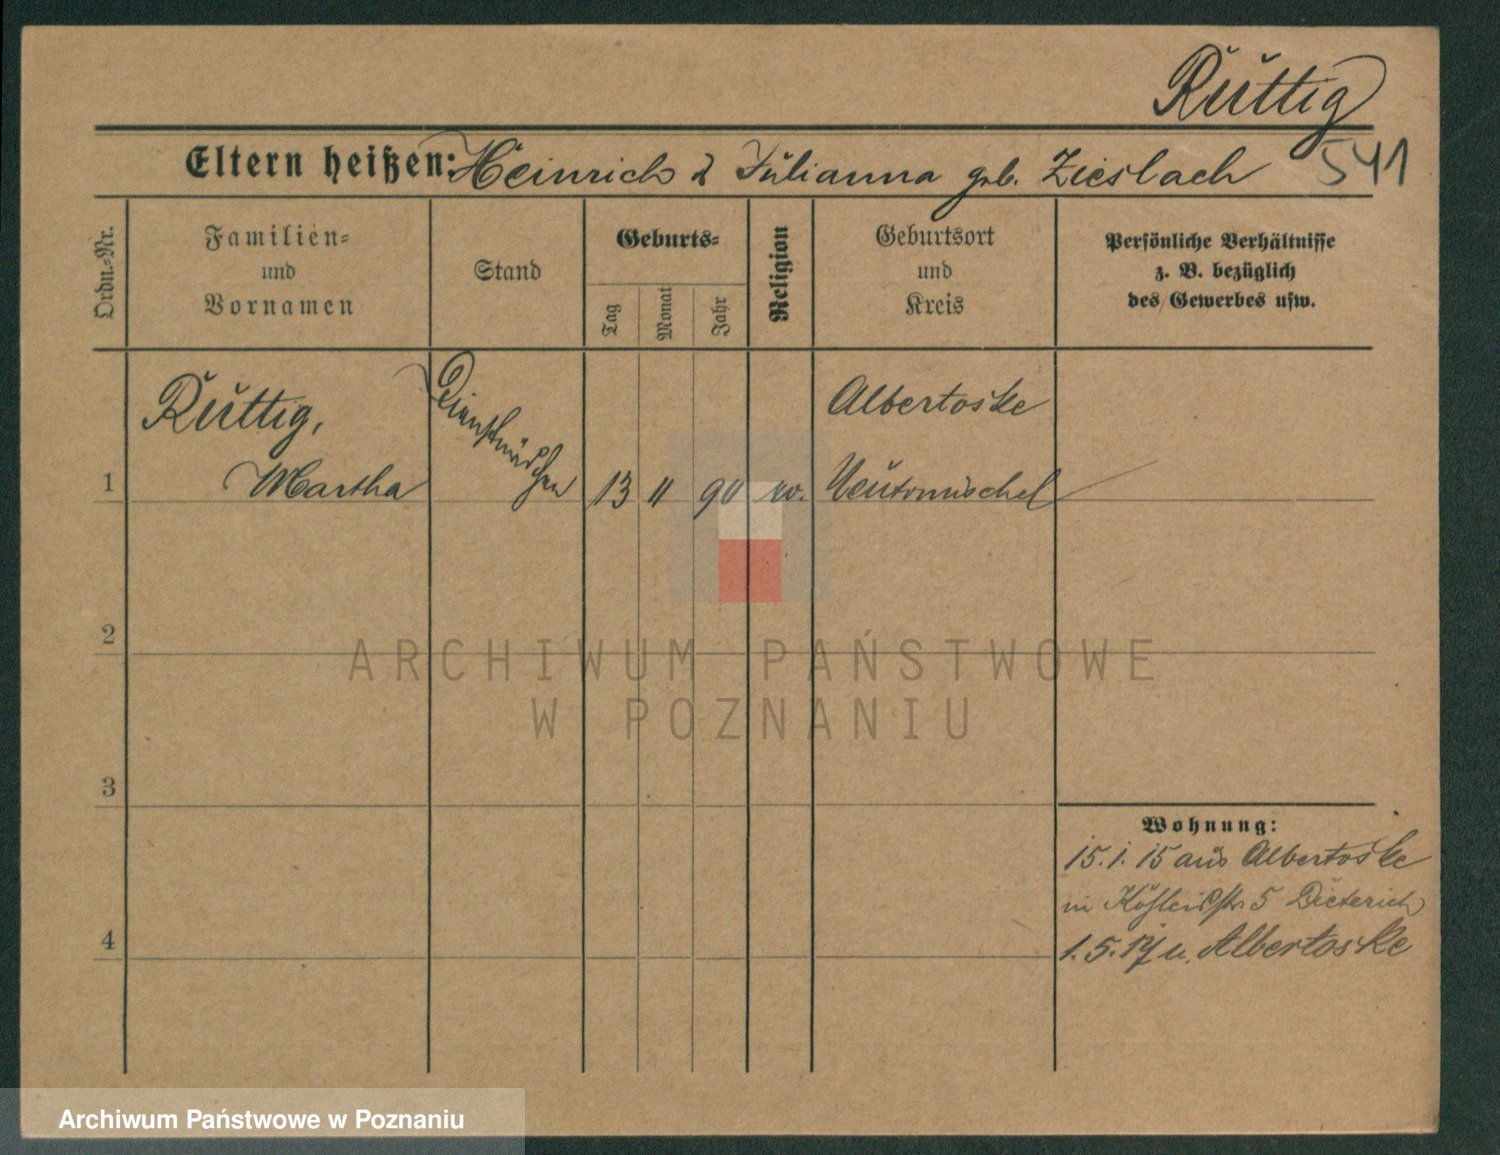 Rŭttig
Eltern heißen: Heinrich & Jŭlianna geb. Zieslach
541
Ordn.-Nr.
Familien-
und
Vornamen
Stand
Geburts-
Tag
Monat
Jahr
Religion
Geburtsort
und
Kreis
Persönliche Verhältnisse
z. B. bezüglich
des Gewerbes usw.
Rŭttig,
Martha
Dienstmädchen
1
13 11 90
Albertoske
Neŭtomischel
2
3
4
Wohnung:
15.1.15 aŭs Albertoske
in 5 Dieterich
1.5.17 n. Albertoske
ARCHIWUM PAŃSTWOWE
W POZNANIU
Archiwum Państwowe w Poznaniu